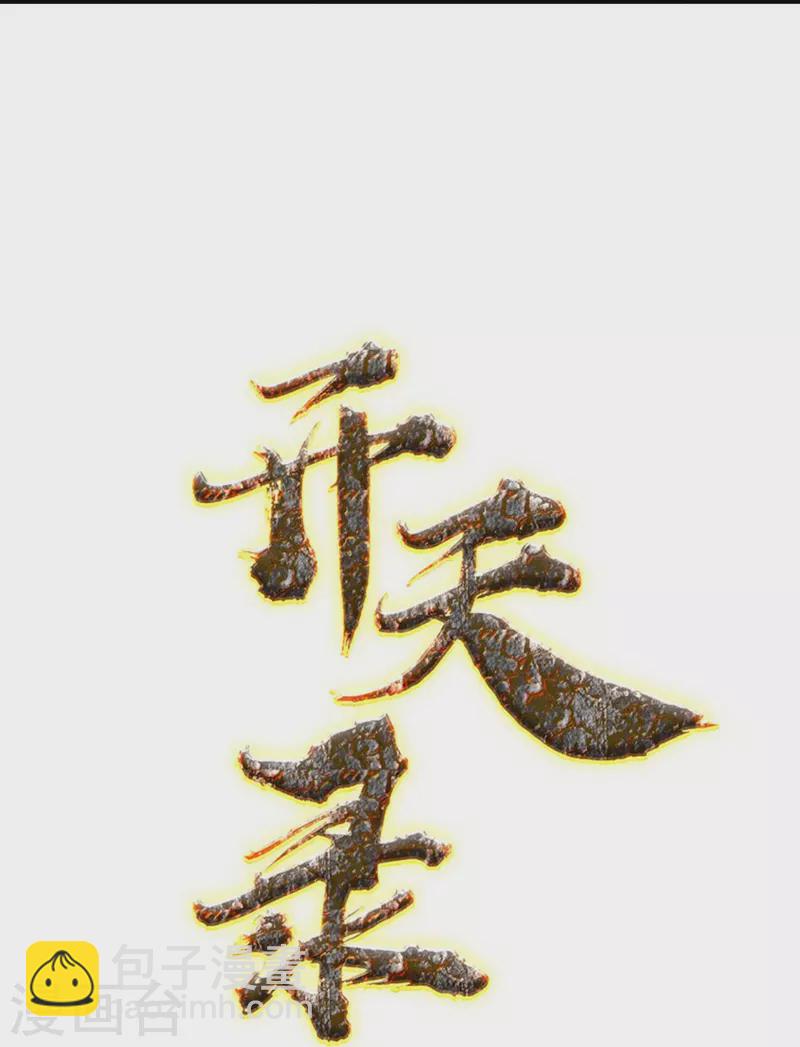 开天录
包子漫畫
baozimh.com
漫画台